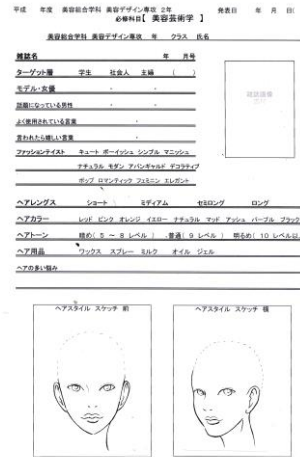 平成　年度　美容総合学科　美容デザイン専攻　2年　発表日　年　月　日(
必修科目【　美容芸術学　】
美容総合学科　美容デザイン専攻　年　クラス　氏名
雑誌名　年　月号
ターゲット層　学生　社会人　主婦　(　)
モデル・女優　・　・
話題になっている男性　・　・
よく使用されている言葉　・
言われたら嬉しい言葉　・
ファッションテイスト　キュート　ボーイッシュ　シンプル　マニッシュ
ナチュラル　モダン　アバンギャルド　デコラティブ
ポップ　ロマンティック　フェミニン　エレガント
ヘアレングス　ショート　ミディアム　セミロング　ロング
ヘアカラー　レッド　ピンク　オレンジ　イエロー　ナチュラル　マット　アッシュ　パープル　ブラック
ヘアトーン　暗め(5　～　8レベル)　・普通(9レベル)　明るめ(10レベル以
ヘア用品　ワックス　スプレー　ミルク　オイル　ジェル
ヘアの多い悩み
ヘアスタイル　スケッチ　前
ヘアスタイル　スケッチ　横